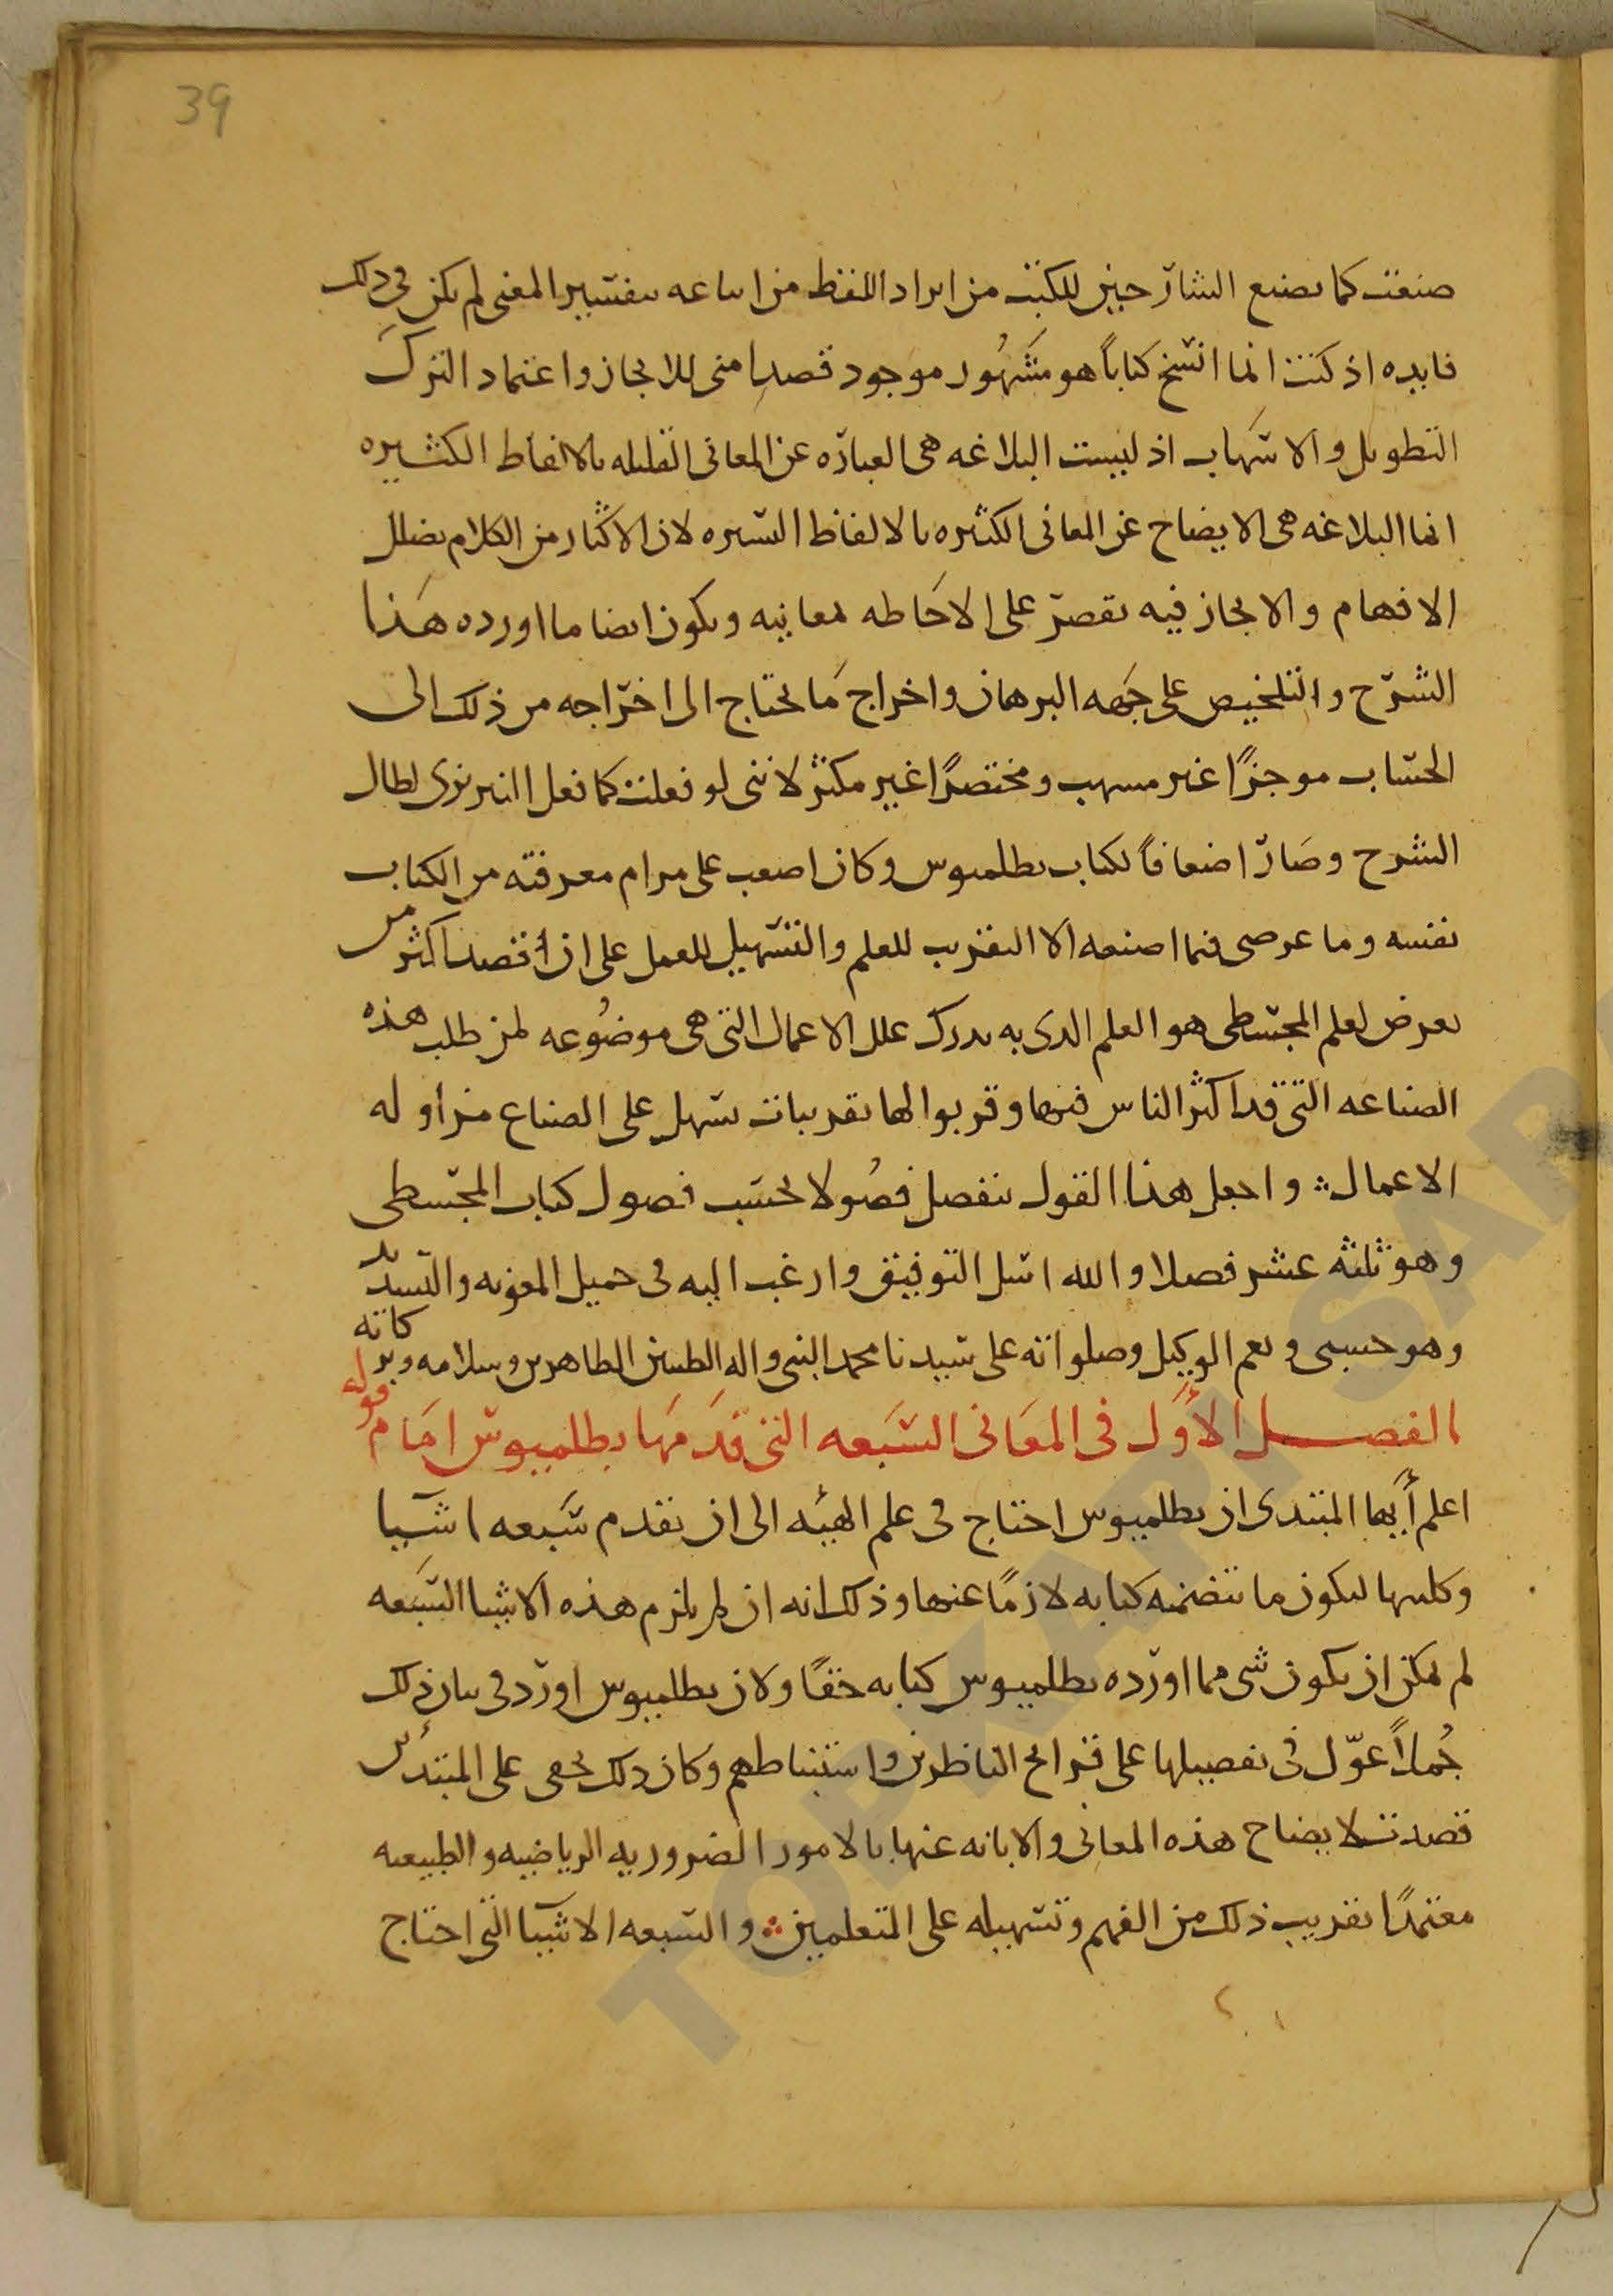 39
صنعت كما يصنع الشارحين للكتب من ايراد اللفظ من اتباعه بتفسير المعنى لم يكن في ذلك
فايده اذ كنت انما انسخ كتاباً هو مشهُور موجود قصدا منى للايجاز واعتماد الترك
التطويل والاسهاب اذ ليست البلاغه هى العباره عن المعانى القليله بالالفاظ الكثيره
انما البلاغه هى الايضاح عن المعانى الكثيره بالالفاظ اليسيره لان الاكثار من الكلام يضلل
الافهام والايجاز فيه يقصر على الاحَاطه لمعانيه ويكون ايضا ما اورده هَذا
الشرح والتلخيص على جهه البرهان واخراج مَا يحتاج الى اخراجه من ذلك الى
الحساب موجزًا غير مسهب ومختصرًا غير مكثر لاننى لو فعلت كما فعل النيريزى لطال
الشرح وصَار اضعافاً لكتاب بطلميوس وكان اصعب على مرام معرفته من الكتاب
نفسه وما غرضى فيما اصنعه الا التقريب للعلم والتسهيل للعمل على ان اقصد اكثر من
يعرض لعلم المجسطى هو العلم الذى به يدرك علل الاعمال التى هى موضُوعه لمن طلب هذه
الصناعه التى قد اكثر الناس فيها وقربوا لها تقريبات تسهل على الصناع مزاوله
الاعمال ؞ واجعل هذا القول ينفصل فصُولا بحسَب فصول كتاب المجسطى
وهو ثلثه عشر فصلا والله اسل التوفيق وارغب اليه في جميل المعونه والتسديد
وهو حسبى ونعم الوكيل وصلواته على سيدنا محمد النبى واله الطيبين الطاهرين وسلامه وبركاته
الفصل الأوَّل في المعَانى السَبعه التى قدَمهَا بطلميوس امَام قوله
اعلم أيها المبتدى ان بطلميوس احتاج في علم الهيئه الى ان يقدم سَبعه اشيا
وكليها ليكون ما تتضمنه كتابه لازمًا عنها وذلك انه ان لم يلزم هذه الاشيا السَبعه
لم يمكن ان يكون شى مما اورده بطلميوس كتابه حقًا ولان بطلميوس اورد في بيان ذلك
جُملاً عوّل في تفصيلها على قرايح الناظرين واستنباطهم وكان ذلك يخفى على المبتدئين
قصدت لايضاح هذه المعانى والابانه عنها بالامور الضروريه الرياضيه والطبيعيه
معتمدًا تقريب ذلك من الفهم وتسهيله على المتعلمين ؞ والسبعه الاشيا التى احتاج
TOPKAPI SARA